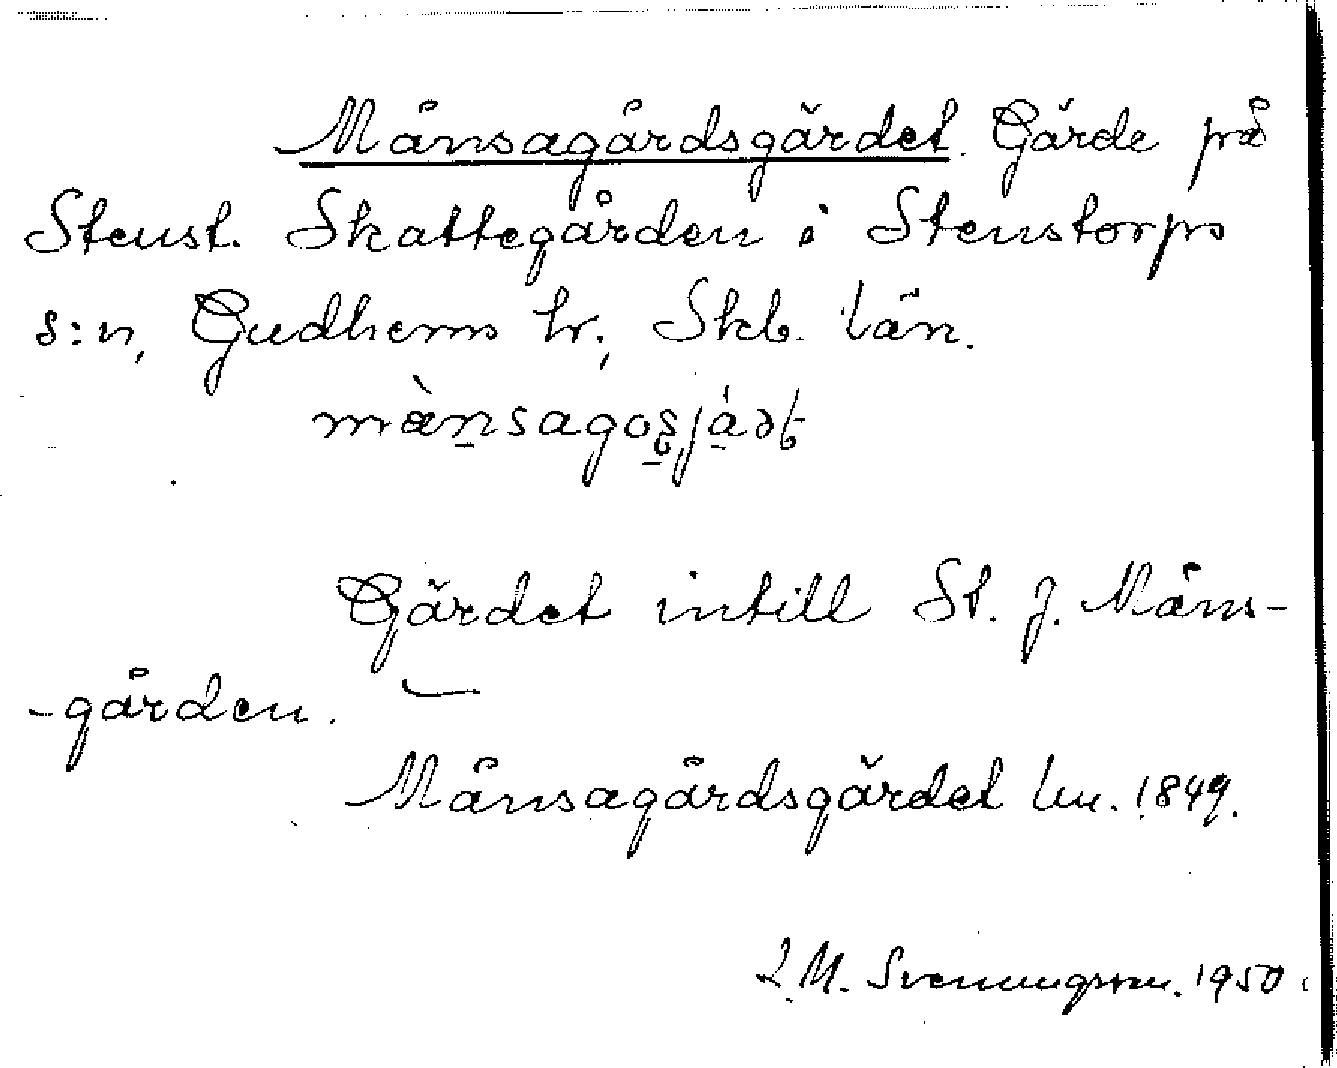 Månsagårdsgärdet. Gärde på
Stenst. Skattegården i Stenstorps
s:n, Gudhems hr., Skb. län.
Gärdet intill St. J. Måns-
-gården.
Månsagårdsgärdet lm. 1849.
L.M. Svenungsson. 1950